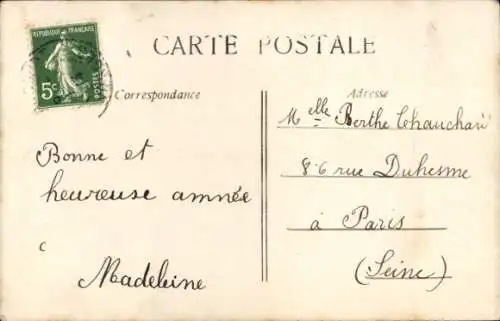 RÉPUBLIQUE FRANÇAISE
5c
POSTES
CARTE POSTALE
Correspondance
Adresse
Bonne et
heureuse amnée
Madeleine
Melle Berthe
86 rue Duhesme
à Paris
(Seine)